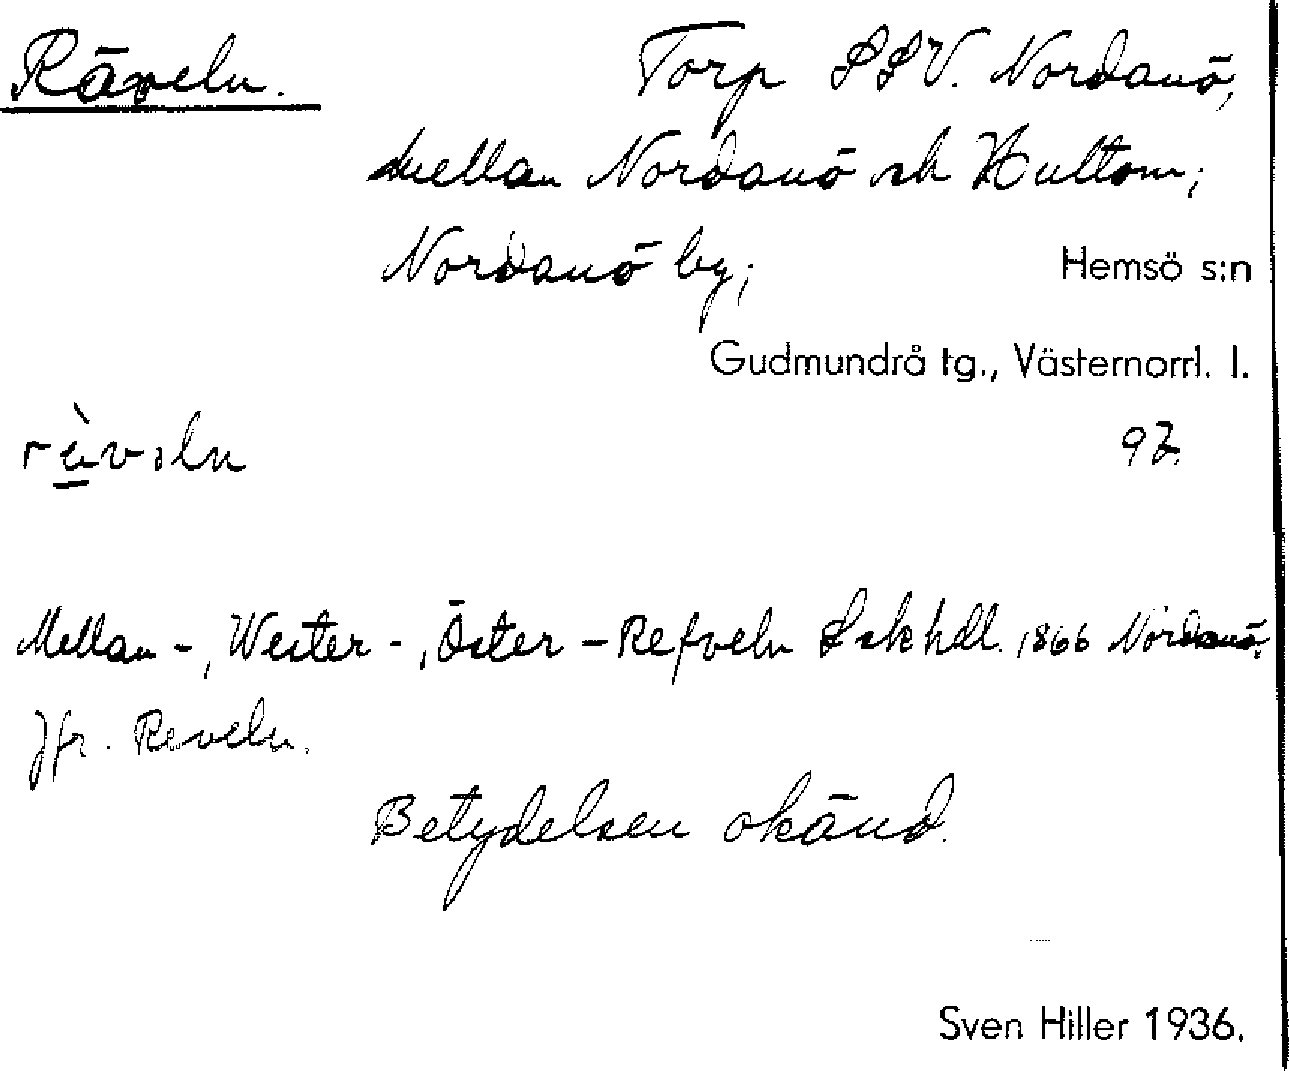 Räveln. Torp SSV. Nordanö,
mellan Nordanö och Hultom;
Nordanö by; Hemsö s:n
Gudmundrå tg., Västernorrl. l.
97.
Mellan-, Wester-, Öster-Refveln Lskhdl. 1866 Nordanö.
Jfr. Reveln.
Betydelsen okänd.
Sven Hiller 1936.